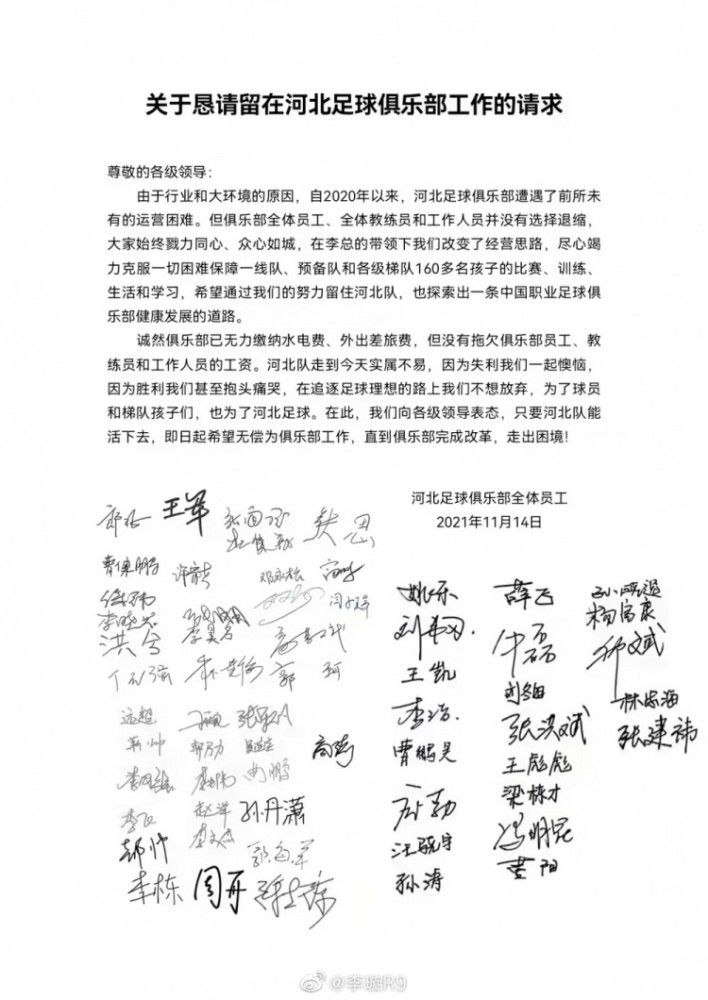 关于恳请留在河北足球俱乐部工作的请求
尊敬的各级领导：
由于行业和大环境的原因，自2020年以来，河北足球俱乐部遭遇了前所未
有的运营困难。但俱乐部全体员工、全体教练员和工作人员并没有选择退缩，
大家始终戮力同心、众心如城，在李总的带领下我们改变了经营思路，尽心竭
力克服一切困难保障一线队、预备队和各级梯队160多名孩子的比赛、训练、
生活和学习，希望通过我们的努力留住河北队，也探索出一条中国职业足球俱
乐部健康发展的道路。
诚然俱乐部已无力缴纳水电费、外出差旅费，但没有拖欠俱乐部员工、教
练员和工作人员的工资。河北队走到今天实属不易，因为失利我们一起懊恼，
因为胜利我们甚至抱头痛哭，在追逐足球理想的路上我们不想放弃，为了球员
和梯队孩子们，也为了河北足球。在此，我们向各级领导表态，只要河北队能
活下去，即日起希望无偿为俱乐部工作，直到俱乐部完成改革，走出困境！
河北足球俱乐部全体员工
2021年11月14日
王军
洪兮
郭 珂
姚乐 薛飞
杨富康
王凯
刘翔
李浩 张洪斌 林志海
曹鹏昊 张建祎
王彪彪
梁栋才
孙丹潇
汪晓宇 冯明昆
郝帅 黄阳
李栋 周丹 孙涛
@李璇R9